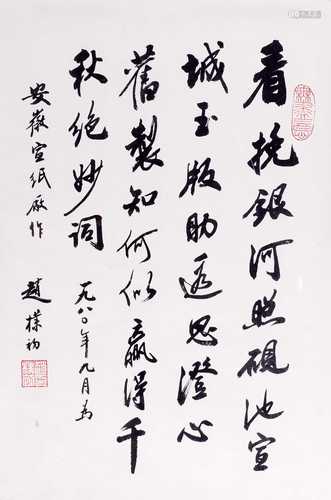 看挽银河照砚池宣
城玉版助遐思澄心
旧製知何似赢得千
秋绝妙词
一九八〇年九月为
安徽宣纸厰作
趙樸初